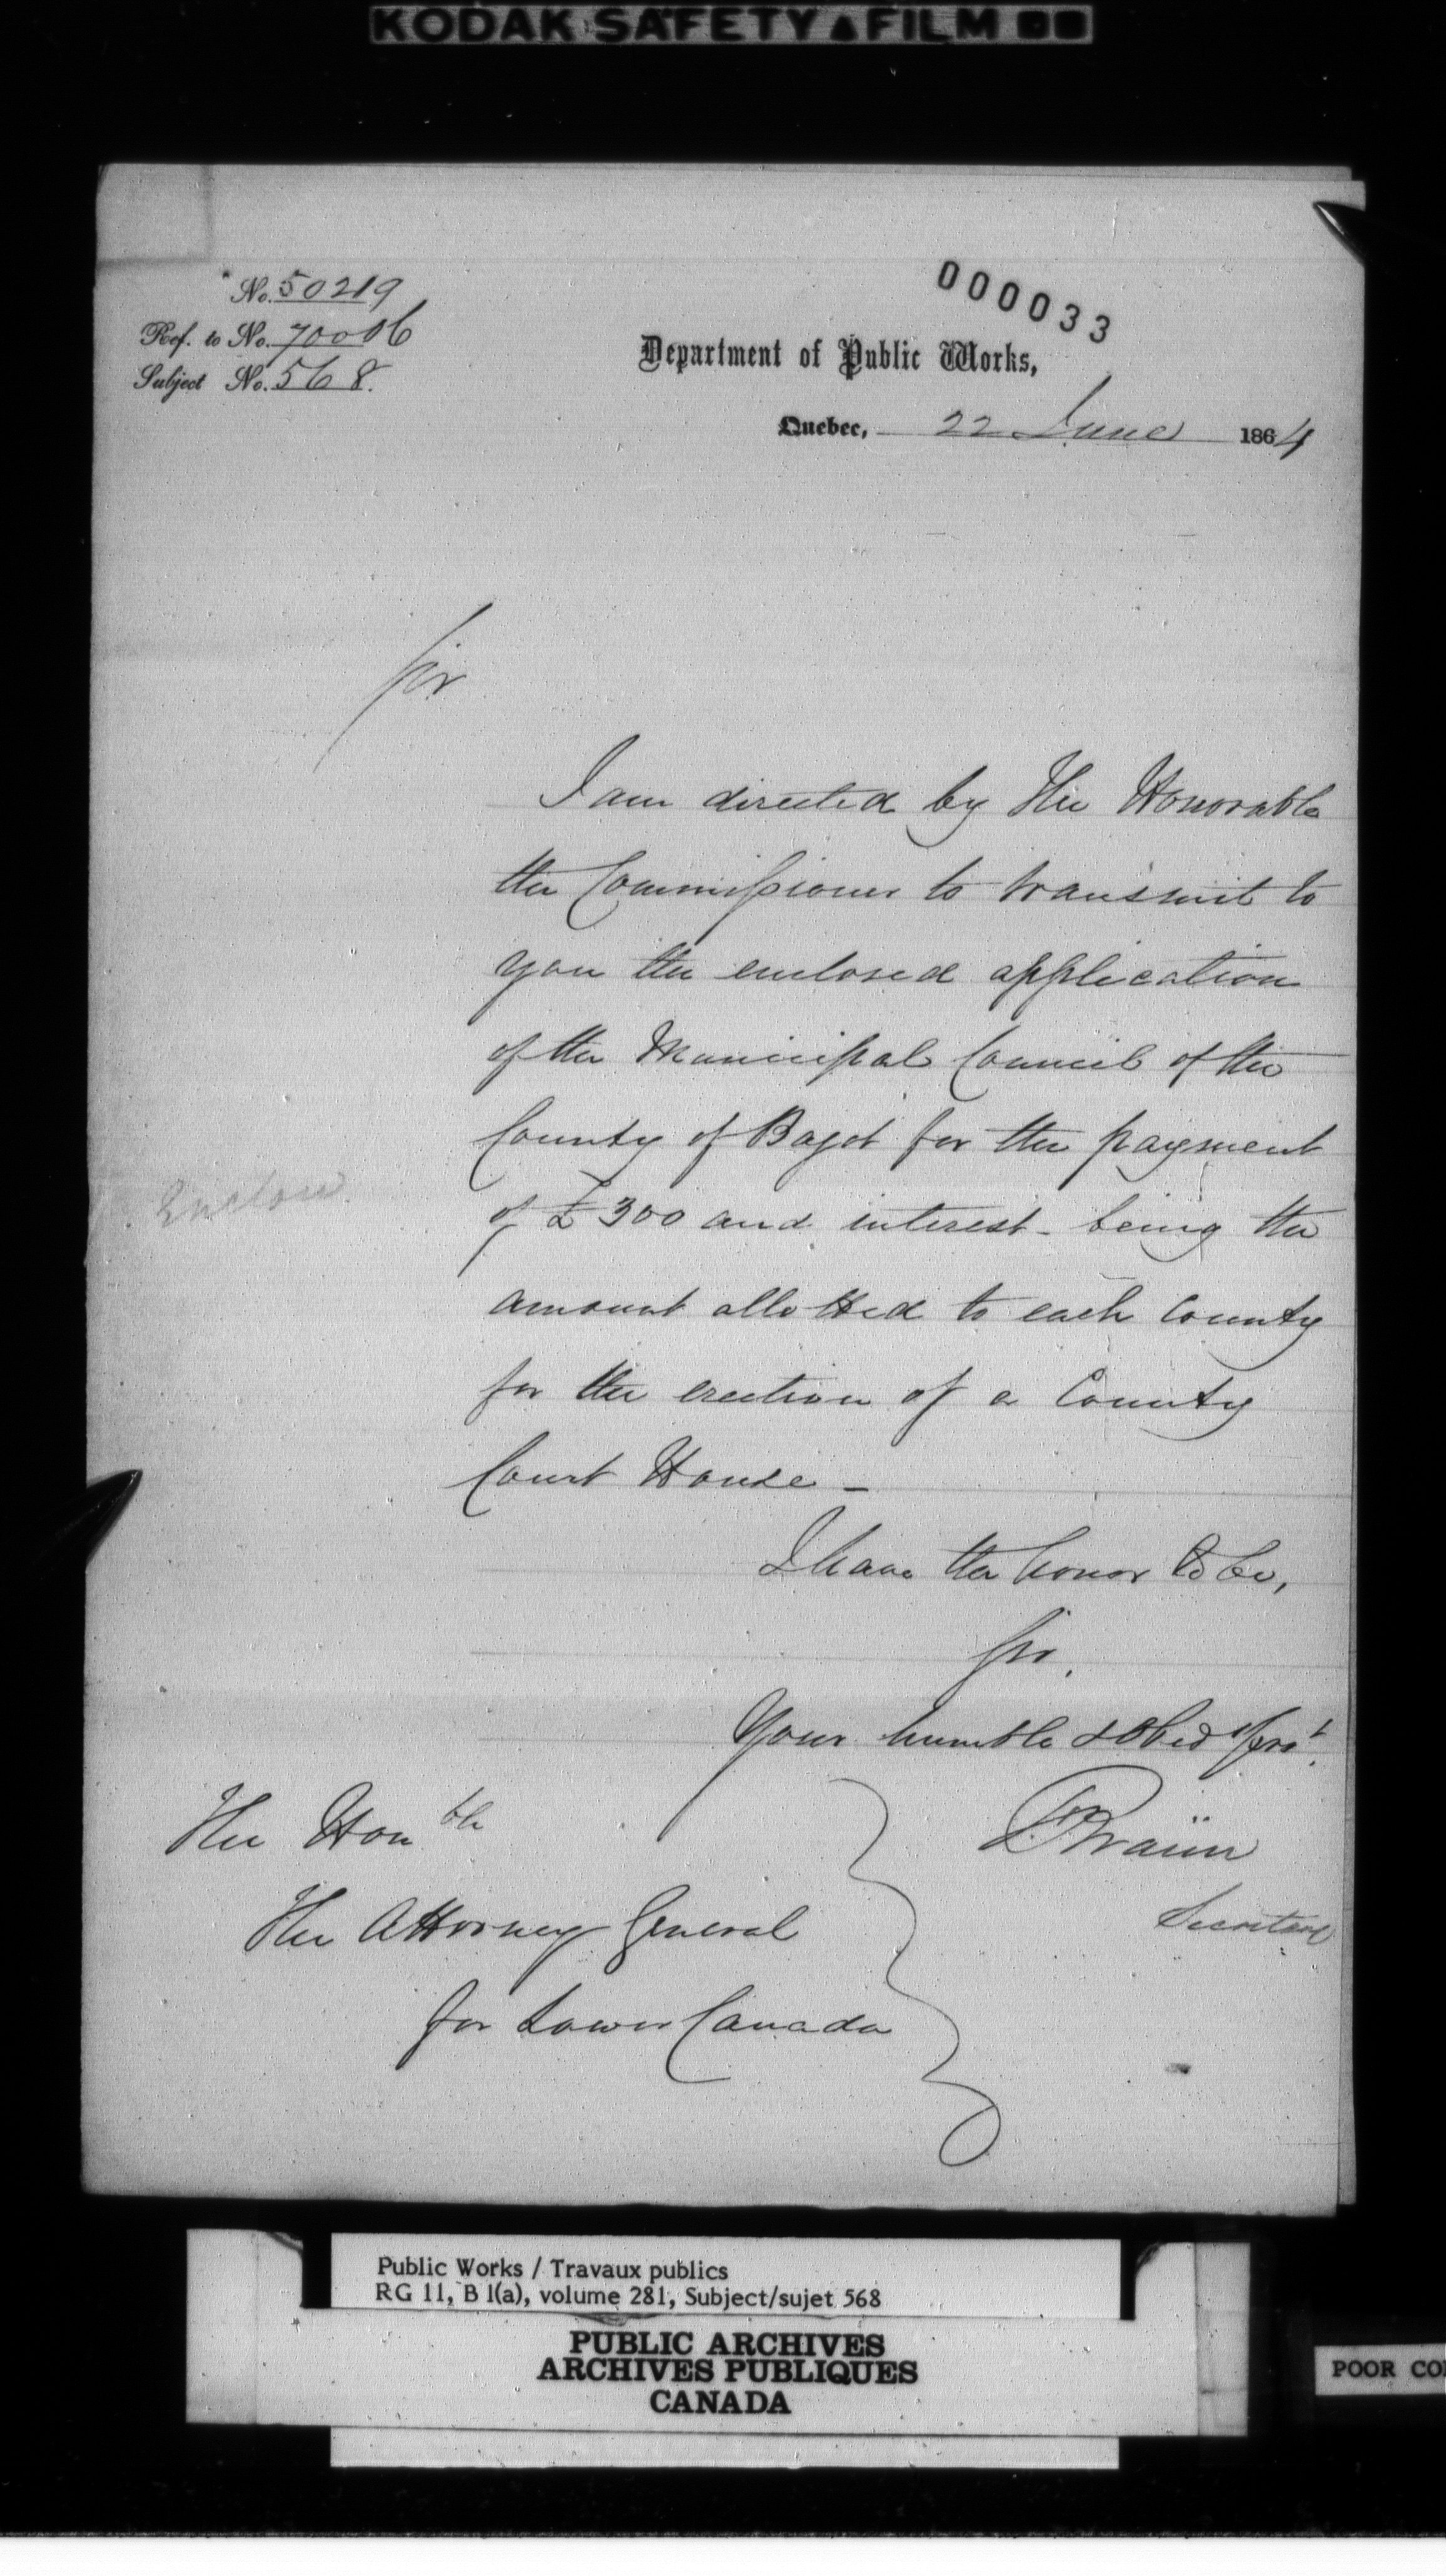 KODAK SAFETY FILM
000033
No. 50219
Ref. to No. 70006
Subject No. 568.
Department of Public Works,
Quebec, 22 June 1864
Sir
I am directed by The Honorable
the Commissioner to transmit to
you the enclosed application
of the Municipal Council of the
County of Bagot for the payment
of £300 and interest - being the
amount allotted to each County
for the erection of a County
Court House -
Enclosure
I have the honor to be,
Sir,
Your humble & Obed Servt.
F Braün
Secretary
The Honble
The Attorney General
for Lower Canada
Public Works / Travaux publics
RG 11, B 1(a), volume 281, Subject/sujet 568
PUBLIC ARCHIVES
ARCHIVES PUBLIQUES
CANADA
POOR